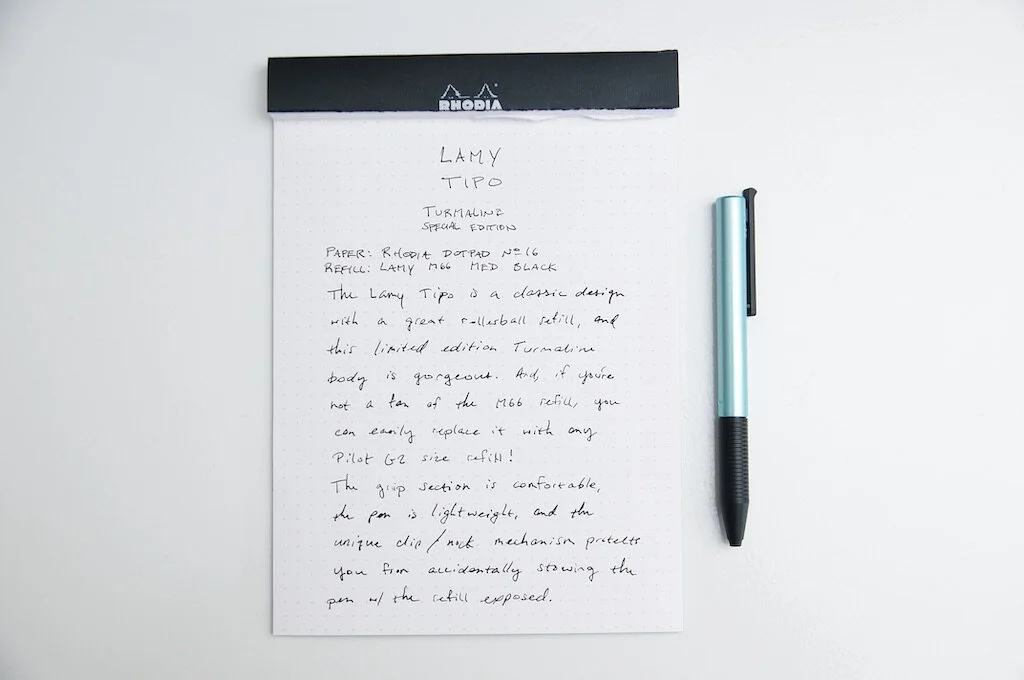 RHODIA
LAMY
TIPO
TURMALINE
SPECIAL EDITION
PAPER: RHODIA DOTPAD Nº 16
REFILL: LAMY M66 MED BLACK
The Lamy Tipo is a classic design
with a great rollerball refill, and
this limited edition Turmaline
body is gorgeous. And, if you're
not a fan of the M66 refill, you
can easily replace it with any
Pilot G2 size refill!
The grip section is comfortable,
the pen is lightweight, and the
unique clip/nock mechanism protects
you from accidentally stowing the
pen w/ the refill exposed.